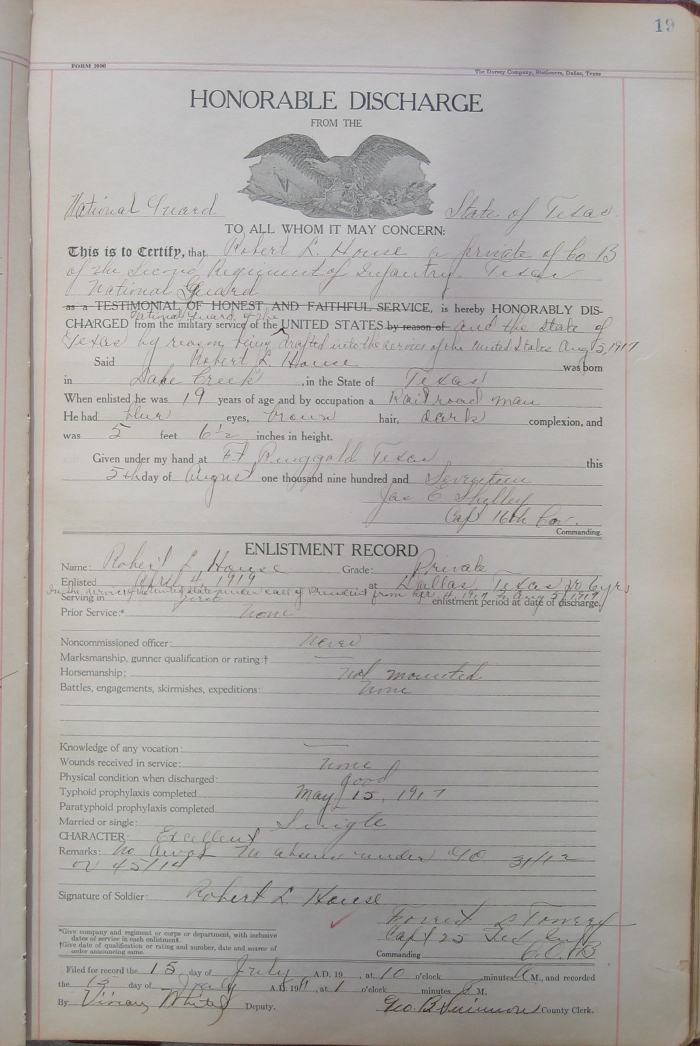 19
FORM 2090
The Dorsey Company, Stationers, Dallas, Texas
HONORABLE DISCHARGE
FROM THE
National Guard State of Texas
TO ALL WHOM IT MAY CONCERN:
This is to Certify, that Robert L. House a private of Co B
of the Second Regiment of Infantry Texas
National Guard
as a TESTIMONIAL OF HONEST AND FAITHFUL SERVICE, is hereby HONORABLY DIS-
National Guard of the
CHARGED from the military service of the UNITED STATES by reason of and the State of
Texas by reason being drafted into the service of the United States Aug 5, 1917
Said Robert L. House was born
in Lake Creek, in the State of Texas
When enlisted he was 19 years of age and by occupation a Railroad man
He had blue eyes, brown hair, dark complexion, and
was 5 feet 6½ inches in height.
Given under my hand at Ft Ringgold Texas this
5th day of August one thousand nine hundred and Seventeen
Jas E Shelley
Cap 16th Cav.
Commanding.
ENLISTMENT RECORD
Name: Robert L House Grade: Private
Enlisted April 4, 1919 at Dallas Texas 6 yrs
In the service of the United States under call of President from Apr 4, 1917 to Aug 5, 1917
Serving in first enlistment period at date of discharge.
Prior Service:* None
Noncommissioned officer: Never
Marksmanship, gunner qualification or rating:†
Horsemanship: Not mounted
Battles, engagements, skirmishes, expeditions: None
Knowledge of any vocation:
Wounds received in service: None
Physical condition when discharged: Good
Typhoid prophylaxis completed May 15, 1917
Paratyphoid prophylaxis completed
Married or single: Single
CHARACTER: Excellent
Remarks: No Awol No absence under GO 31/12
or 45/14
Signature of Soldier: Robert L House
Capt 2d
Commanding Co. B
*Give company and regiment or corps or department, with inclusive
dates of service in each enlistment.
†Give date of qualification or rating and number, date and source of
order announcing same.
Filed for record the 15 day of July A.D. 19 , at 10 o'clock minutes A M., and recorded
the 15 day of July A.D. 19 , at 1 o'clock minutes P M.
By Vivian White Deputy. Geo. B County Clerk.